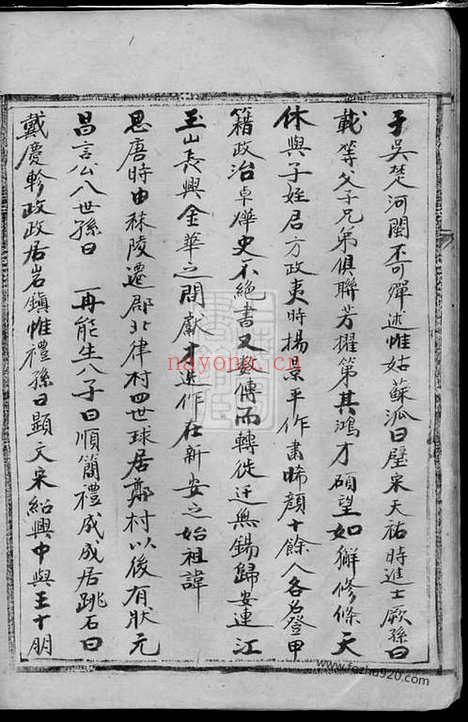 于吳楚河閩不可殫述惟姑蘇派曰壁宋天祐時進士厥孫曰
載等父子兄弟俱聯芳擢第其鴻才碩望如獬修條天
休與子姪君方政夷時揚景平作肅晞顏十餘人各登甲
籍政治卓犖史不絕書又数傳而轉徙迁無錫歸安連江
玉山長興金華之間獻才迭作在新安之始祖諱
思唐時由秣陵遷郡北律村四世球居鄭村以後有狀元
昌言公八世孫曰 再能生八子曰順簡禮成成居跳石曰
戴慶軫政政居岩鎮惟禮孫曰顕文宋紹興中與王十朋
nayona.cn
www.fozhu920.com